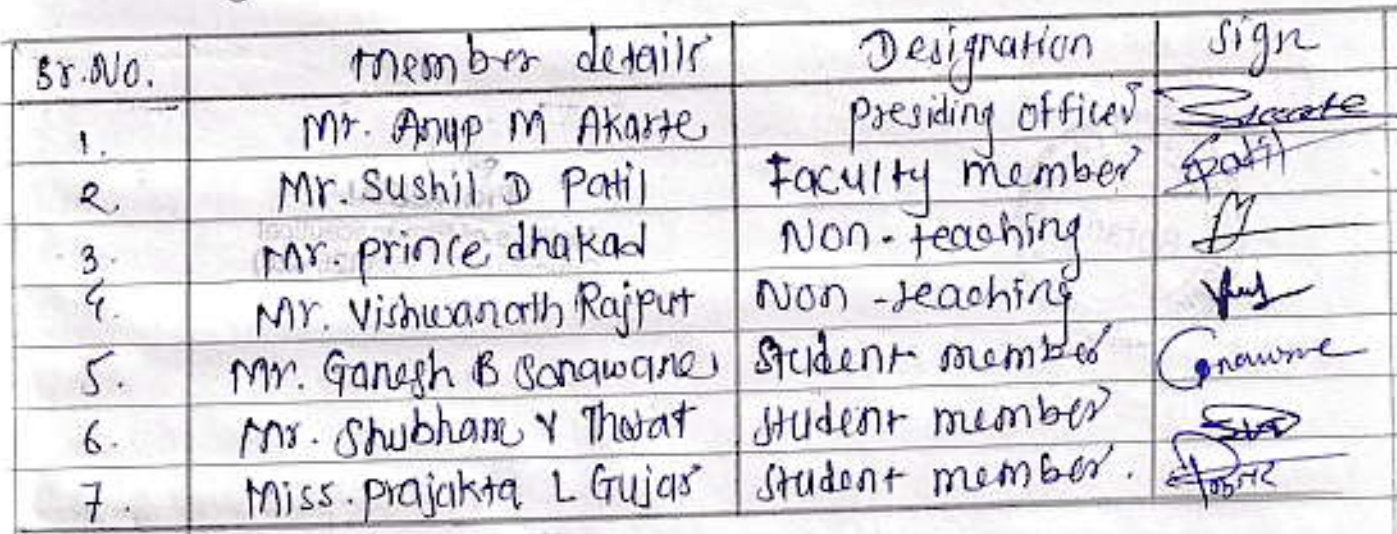 Sr.No. Member details Designation Sign
1. Mr. Anup M Akarte Presiding officer
2. Mr. Sushil D Patil Faculty member Patil
3. Mr. prince dhakad Non-teaching
4. Mr. Vishwanath Rajput Non-teaching
5. Mr. Ganesh B Sonawane Student member
6. Mr. Shubham Y Thorat Student member
7. Miss. Prajakta L Gujar Student member.